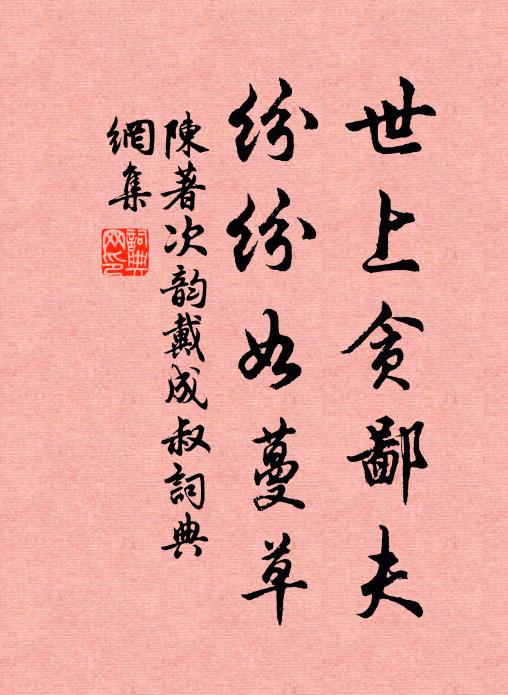 世上貪鄙夫
紛紛如蔓草
陳著次韵戴成叔詞典
網集
詞典網印